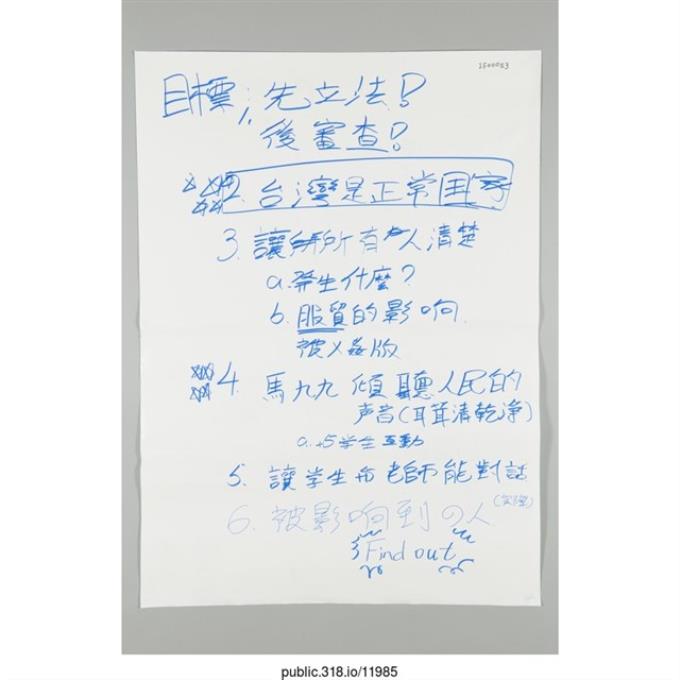 1500053
目標: 1. 先立法!
後審查!
2. 台灣是正常国家
3. 讓所有人清楚
a. 發生什麼?
b. 服貿的影响
4. 馬九九 傾聽人民的
声音(耳茸清乾净)
a. 与学生互動
5. 讓学生和老師能對話
6. 被影响到の人
Find out
public.318.io/11985